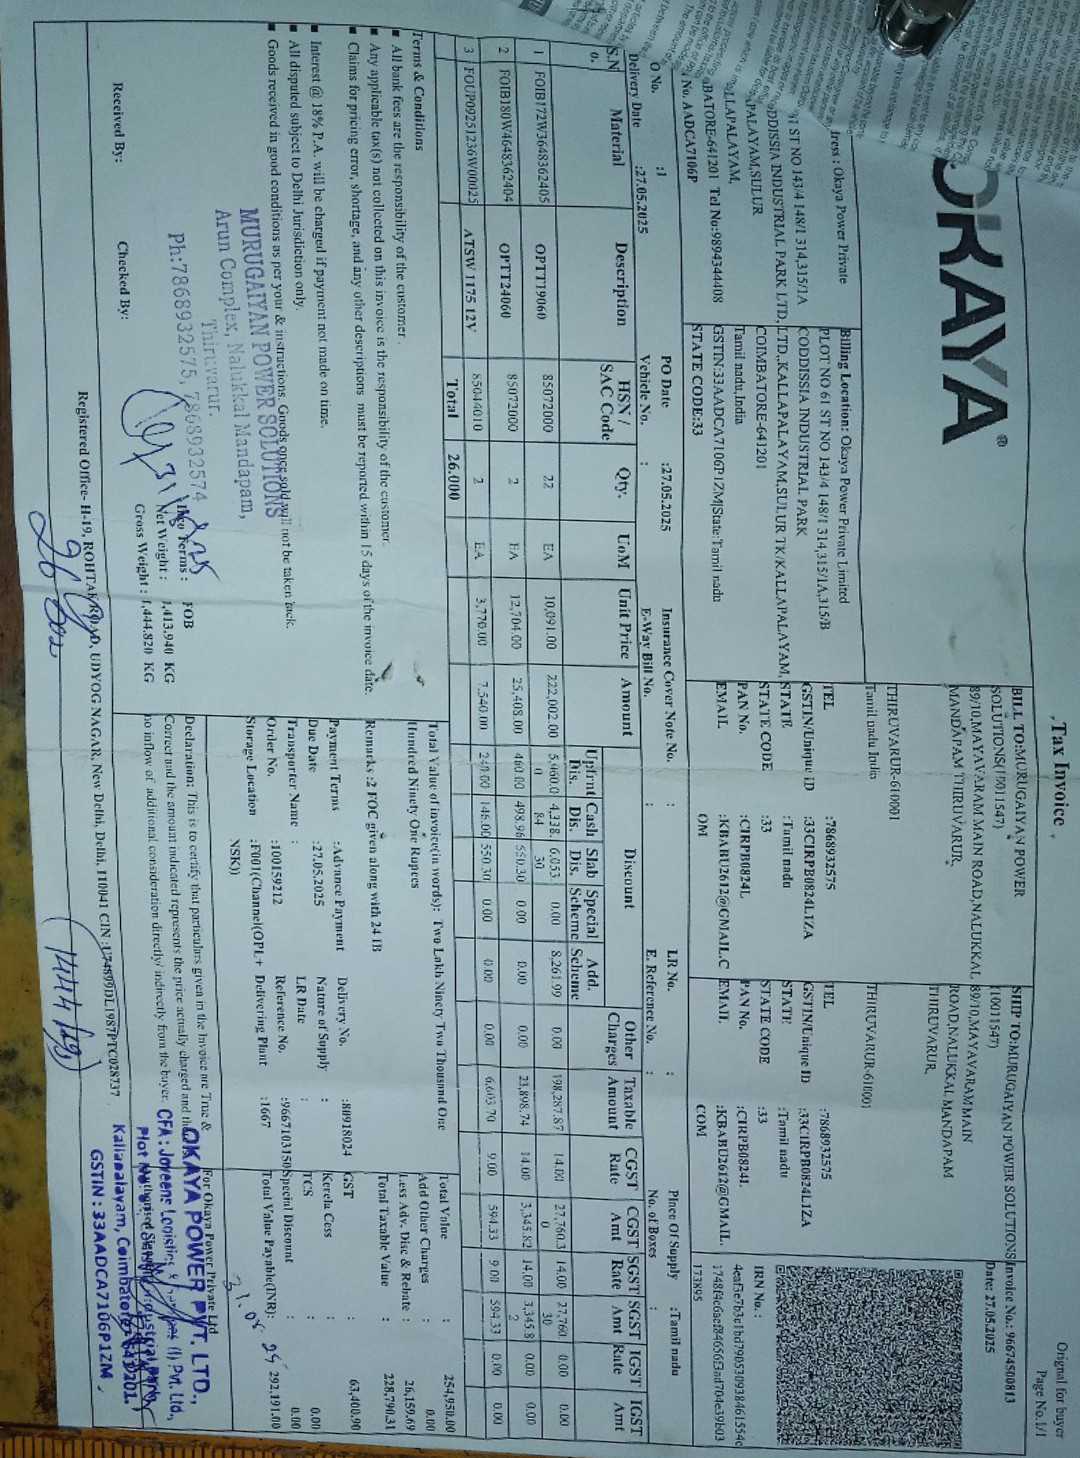 Orignal for buyer
Page No.1/1
Tax Invoice
OKAYA®
tress : Okaya Power Private
ST NO 143/4 148/1 314,315/1A
ODDISSIA INDUSTRIAL PARK LTD,
APALAYAM,SULUR
LLAPALAYAM,
BATORE-641201 Tel No:9894344408
No. AADCA7106P
Billing Location: Okaya Power Private Limited
PLOT NO 61 ST NO 143/4 148/1 314,315/1A,315/B
CODDISSIA INDUSTRIAL PARK
LTD.,KALLAPALAYAM,SULUR TK/KALLAPALAYAM,
COIMBATORE-641201
Tamil nadu,India
GSTIN:33AADCA7106P1ZM|State:Tamil nadu
STATE CODE:33
BILL TO:MURUGAIYAN POWER
SOLUTIONS(110011547)
89/10,MAYAVARAM MAIN ROAD,NALUKKAL
MANDAPAM THIRUVARUR,
THIRUVARUR-610001
Tamil nadu India
TEL :7868932575
GSTIN/Unique ID :33CIRPB0824L1ZA
STATE :Tamil nadu
STATE CODE :33
PAN No. :CIRPB0824L
EMAIL :KBABU2612@GMAIL.C
OM
SHIP TO:MURUGAIYAN POWER SOLUTIONS(
110011547)
89/10,MAYAVARAM MAIN
ROAD,NALUKKAL MANDAPAM
THIRUVARUR,
THIRUVARUR-610001
TEL :7868932575
GSTIN/Unique ID :33CIRPB0824L1ZA
STATE :Tamil nadu
STATE CODE :33
PAN No. :CIRPB0824L
EMAIL :KBABU2612@GMAIL.
COM
Invoice No.: 96674500813
Date: 27.05.2025
IRN No.:
O No. :1 PO Date :27.05.2025 Insurance Cover Note No. : LR No. : Place Of Supply :Tamil nadu
Delivery Date :27.05.2025 Vehicle No. : E-Way Bill No. : E. Reference No. : No. of Boxes :
S.N o. Material Description HSN / SAC Code Qty. UoM Unit Price Amount Discount Other Charges Taxable Amount CGST Rate CGST Amt SGST Rate SGST Amt IGST Rate IGST Amt
Upfrnt Dis. Cash Dis. Slab Dis. Special Scheme Add. Scheme
1 FOIB172W3648362405 OPTT19060 85072000 22 EA 10,091.00 222,002.00 5,060.0 0 4,338. 84 6,053. 30 0.00 8,261.99 0.00 198,287.87 14.00 27,760.3 0 14.00 27,760. 30 0.00 0.00
2 FOIB180W4648362404 OPTT24060 85072000 2 EA 12,704.00 25,408.00 460.00 498.96 550.30 0.00 0.00 0.00 23,898.74 14.00 3,345.82 14.00 3,345.8 2 0.00 0.00
3 FOUP09251236W00025 ATSW 1175 12V 85044010 2 EA 3,770.00 7,540.00 240.00 146.00 550.30 0.00 0.00 0.00 6,603.70 9.00 594.33 9.00 594.33 0.00 0.00
Total 26.000
Terms & Conditions
■ All bank fees are the responsibility of the customer .
■ Any applicable tax(s) not collected on this invoice is the responsibility of the customer.
■ Claims for pricing error, shortage, and any other descriptions must be reported within 15 days of the invoice date.
■ Interest @ 18% P.A. will be charged if payment not made on time.
■ All disputed subject to Delhi Jurisdiction only.
■ Goods received in good conditions as per your & instructions. Goods once sold will not be taken back.
Total Value of Invoice(in words): Two Lakh Ninety Two Thousand One
Hundred Ninety One Rupees
Remarks :2 FOC given along with 24 IB
Payment Terms :Advance Payment Delivery No. :80918024
Due Date :27.05.2025 Nature of Supply :
Transporter Name : LR Date :
Order No. :100159212 Reference No. :9667103150
Storage Location :F001(Channel(OPL+ NSK)) Delivering Plant :1667
Total Value : 254,950.00
Add Other Charges : 0.00
Less Adv. Disc & Rebate : 26,159.69
Total Taxable Value : 228,790.31
GST : 63,400.90
Kerela Cess :
TCS : 0.00
Special Discount : 0.00
Total Value Payable(INR): 292,191.00
MURUGAIYAN POWER SOLUTIONS
Arun Complex, Nalukkal Mandapam,
Thiruvarur.
Ph:7868932575, 7868932574
Inco Terms : FOB
Net Weight : 1,413.940 KG
Gross Weight : 1,444.820 KG
Received By: Checked By:
Declaration: This is to certify that particulars given in the Invoice are True &
Correct and the amount indicated represents the price actually charged and th
no inflow of additional consideration directly/ indirectly from the buyer.
For Okaya Power Private Ltd
OKAYA POWER PVT. LTD.,
Kallapalayam, Coimbatore-641201.
GSTIN : 33AADCA7106P1ZM
Registered Office- H-19, ROHTAK ROAD, UDYOG NAGAR, New Delhi, Delhi, 110041 CIN :U74899DL1987PTC028737